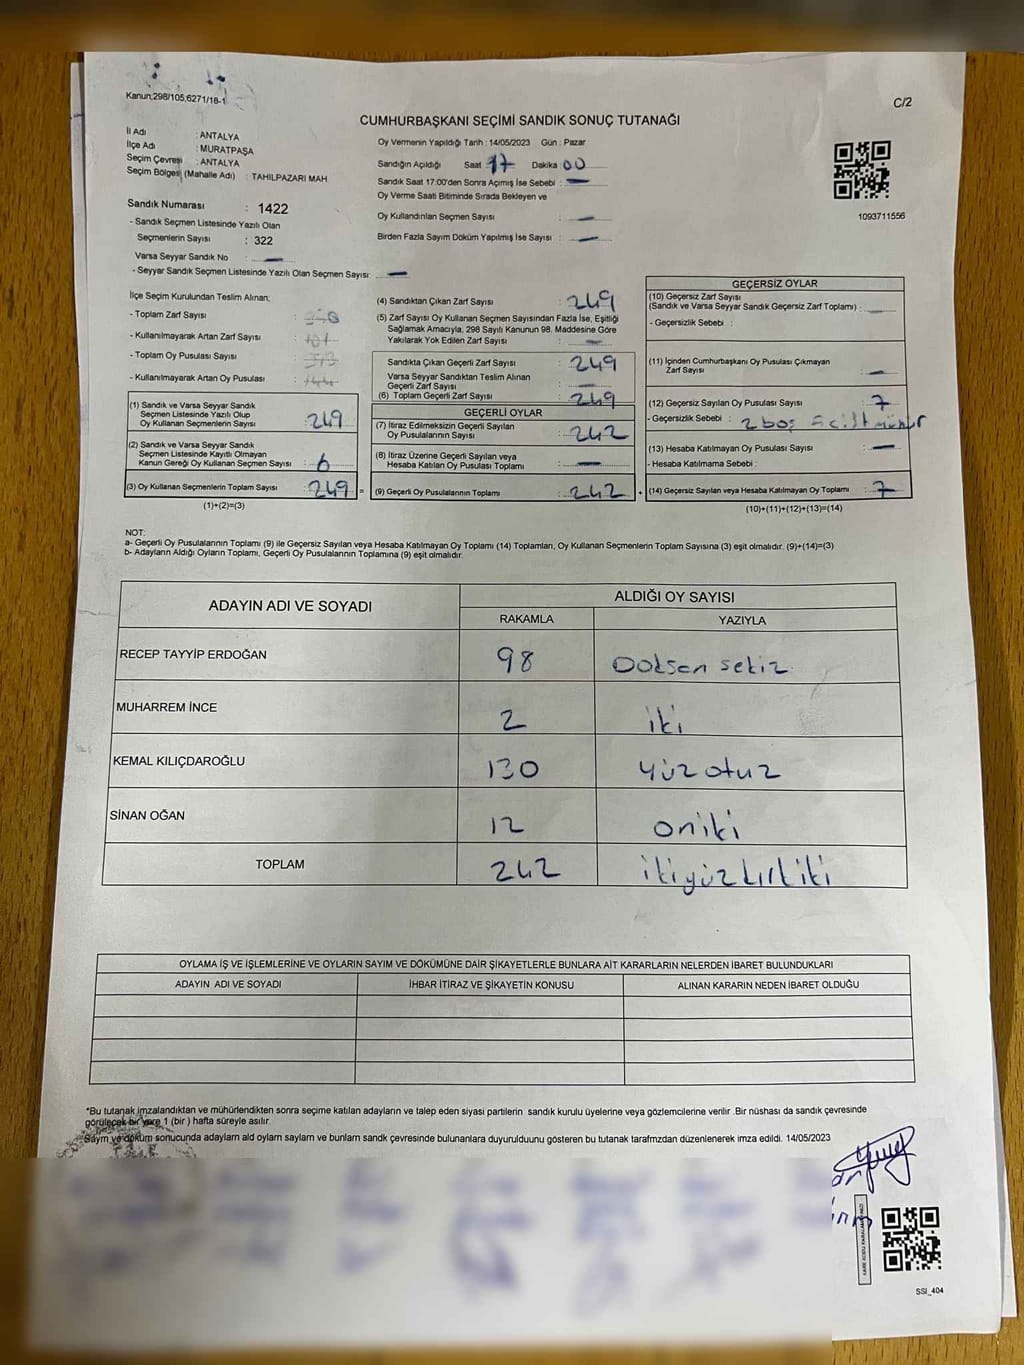 Kanun;298/105;6271/18-1
C/2
CUMHURBAŞKANI SEÇİMİ SANDIK SONUÇ TUTANAĞI
İl Adı : ANTALYA
İlçe Adı : MURATPAŞA
Seçim Çevresi : ANTALYA
Seçim Bölgesi (Mahalle Adı) : TAHILPAZARI MAH
Sandık Numarası : 1422
- Sandık Seçmen Listesinde Yazılı Olan
Seçmenlerin Sayısı : 322
Varsa Seyyar Sandık No :
- Seyyar Sandık Seçmen Listesinde Yazılı Olan Seçmen Sayısı:
Oy Vermenin Yapıldığı Tarih : 14/05/2023 Gün : Pazar
Sandığın Açıldığı Saat 17 Dakika 00
Sandık Saat 17:00'den Sonra Açımış İse Sebebi : —
Oy Verme Saati Bitiminde Sırada Bekleyen ve
Oy Kullandırılan Seçmen Sayısı : —
Birden Fazla Sayım Döküm Yapılmış İse Sayısı : —
1093711556
İlçe Seçim Kurulundan Teslim Alınan;
- Toplam Zarf Sayısı :
- Kullanılmayarak Artan Zarf Sayısı :
- Toplam Oy Pusulası Sayısı :
- Kullanılmayarak Artan Oy Pusulası :
(1) Sandık ve Varsa Seyyar Sandık
Seçmen Listesinde Yazılı Olup
Oy Kullanan Seçmenlerin Sayısı :
(2) Sandık ve Varsa Seyyar Sandık
Seçmen Listesinde Kayıtlı Olmayan
Kanun Gereği Oy Kullanan Seçmen Sayısı : 6
(3) Oy Kullanan Seçmenlerin Toplam Sayısı : 249 =
(1)+(2)=(3)
(4) Sandıktan Çıkan Zarf Sayısı : 249
(5) Zarf Sayısı Oy Kullanan Seçmen Sayısından Fazla İse, Eşitliği
Sağlamak Amacıyla; 298 Sayılı Kanunun 98. Maddesine Göre
Yakılarak Yok Edilen Zarf Sayısı : —
Sandıkta Çıkan Geçerli Zarf Sayısı : 249
Varsa Seyyar Sandıktan Teslim Alınan
Geçerli Zarf Sayısı : —
(6) Toplam Geçerli Zarf Sayısı : 249
GEÇERLİ OYLAR
(7) İtiraz Edilmeksizin Geçerli Sayılan
Oy Pusulalarının Sayısı : 242
(8) İtiraz Üzerine Geçerli Sayılan veya
Hesaba Katılan Oy Pusulası Toplamı : —
(9) Geçerli Oy Pusulalarının Toplamı : 242 +
GEÇERSİZ OYLAR
(10) Geçersiz Zarf Sayısı
(Sandık ve Varsa Seyyar Sandık Geçersiz Zarf Toplamı) : —
- Geçersizlik Sebebi :
(11) İçinden Cumhurbaşkanı Oy Pusulası Çıkmayan
Zarf Sayısı : —
(12) Geçersiz Sayılan Oy Pusulası Sayısı : 7
- Geçersizlik Sebebi : 2 boş
(13) Hesaba Katılmayan Oy Pusulası Sayısı : —
- Hesaba Katılmama Sebebi :
(14) Geçersiz Sayılan veya Hesaba Katılmayan Oy Toplamı : 7
(10)+(11)+(12)+(13)=(14)
NOT:
a- Geçerli Oy Pusulalarının Toplamı (9) ile Geçersiz Sayılan veya Hesaba Katılmayan Oy Toplamı (14) Toplamları, Oy Kullanan Seçmenlerin Toplam Sayısına (3) eşit olmalıdır. (9)+(14)=(3)
b- Adayların Aldığı Oyların Toplamı, Geçerli Oy Pusulalarının Toplamına (9) eşit olmalıdır.
ADAYIN ADI VE SOYADI
ALDIĞI OY SAYISI
RAKAMLA YAZIYLA
RECEP TAYYİP ERDOĞAN 98 Doksan sekiz
MUHARREM İNCE 2 iki
KEMAL KILIÇDAROĞLU 130 yüz otuz
SİNAN OĞAN 12 oniki
TOPLAM 242 ikiyüzkırkiki
OYLAMA İŞ VE İŞLEMLERİNE VE OYLARIN SAYIM VE DÖKÜMÜNE DAİR ŞİKAYETLERLE BUNLARA AİT KARARLARIN NELERDEN İBARET BULUNDUKLARI
ADAYIN ADI VE SOYADI İHBAR İTİRAZ VE ŞİKAYETİN KONUSU ALINAN KARARIN NEDEN İBARET OLDUĞU
*Bu tutanak imzalandıktan ve mühürlendikten sonra seçime katılan adayların ve talep eden siyasi partilerin sandık kurulu üyelerine veya gözlemcilerine verilir .Bir nüshası da sandık çevresinde
görülecek bir yere 1 (bir ) hafta süreyle asılır.
Sayım ve döküm sonucunda adayların ald oyların sayların ve bunların sandk çevresinde bulunanlara duyurulduunu gösteren bu tutanak tarafmzdan düzenlenerek imza edildi. 14/05/2023
SSI_404